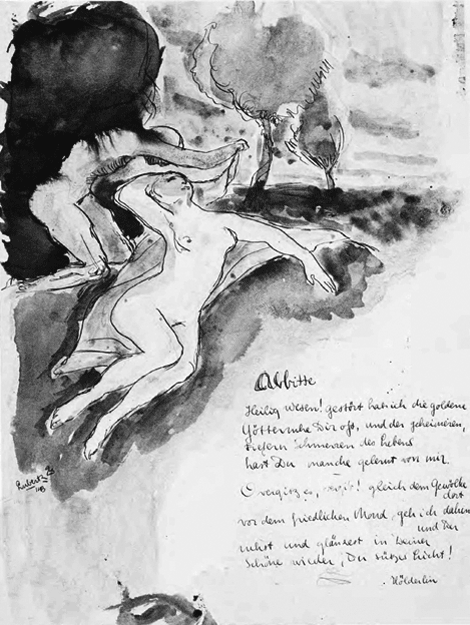 Abbitte
Heilig Wesen! gestört hab ich die goldene
Götterruhe Dir oft, und der geheimeren,
tiefern Schmerzen des Lebens
hast Du manche gelernt von mir.
O vergiss es, vergib! gleich dem Gewölke
dort
vor dem friedlichen Mond, geh ich dahin
und Du
ruhst und glänzest in Deiner
Schöne wieder, Du süsses Licht!
Hölderlin